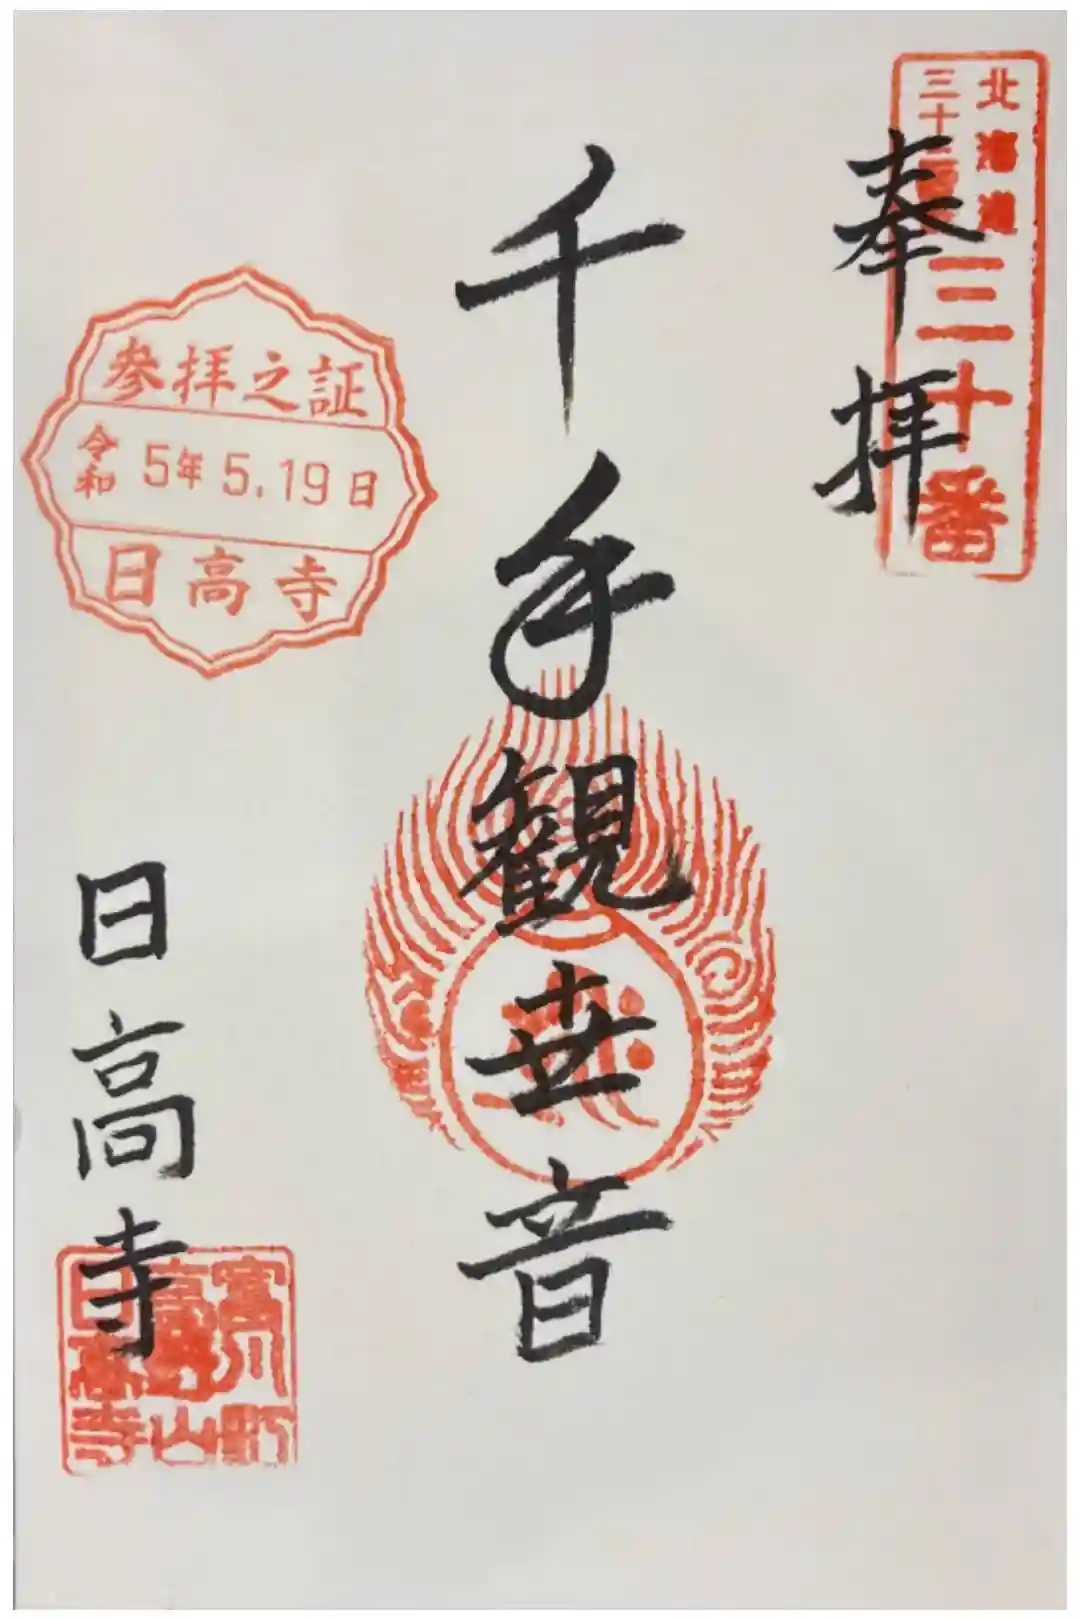 北海道
三十三
三十番
奉拝
千手観世音
参拝之証
令和 5年 5.19日
日高寺
日高寺
富川町
高野山
日高寺